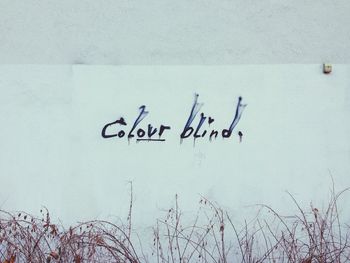 Colour blind.